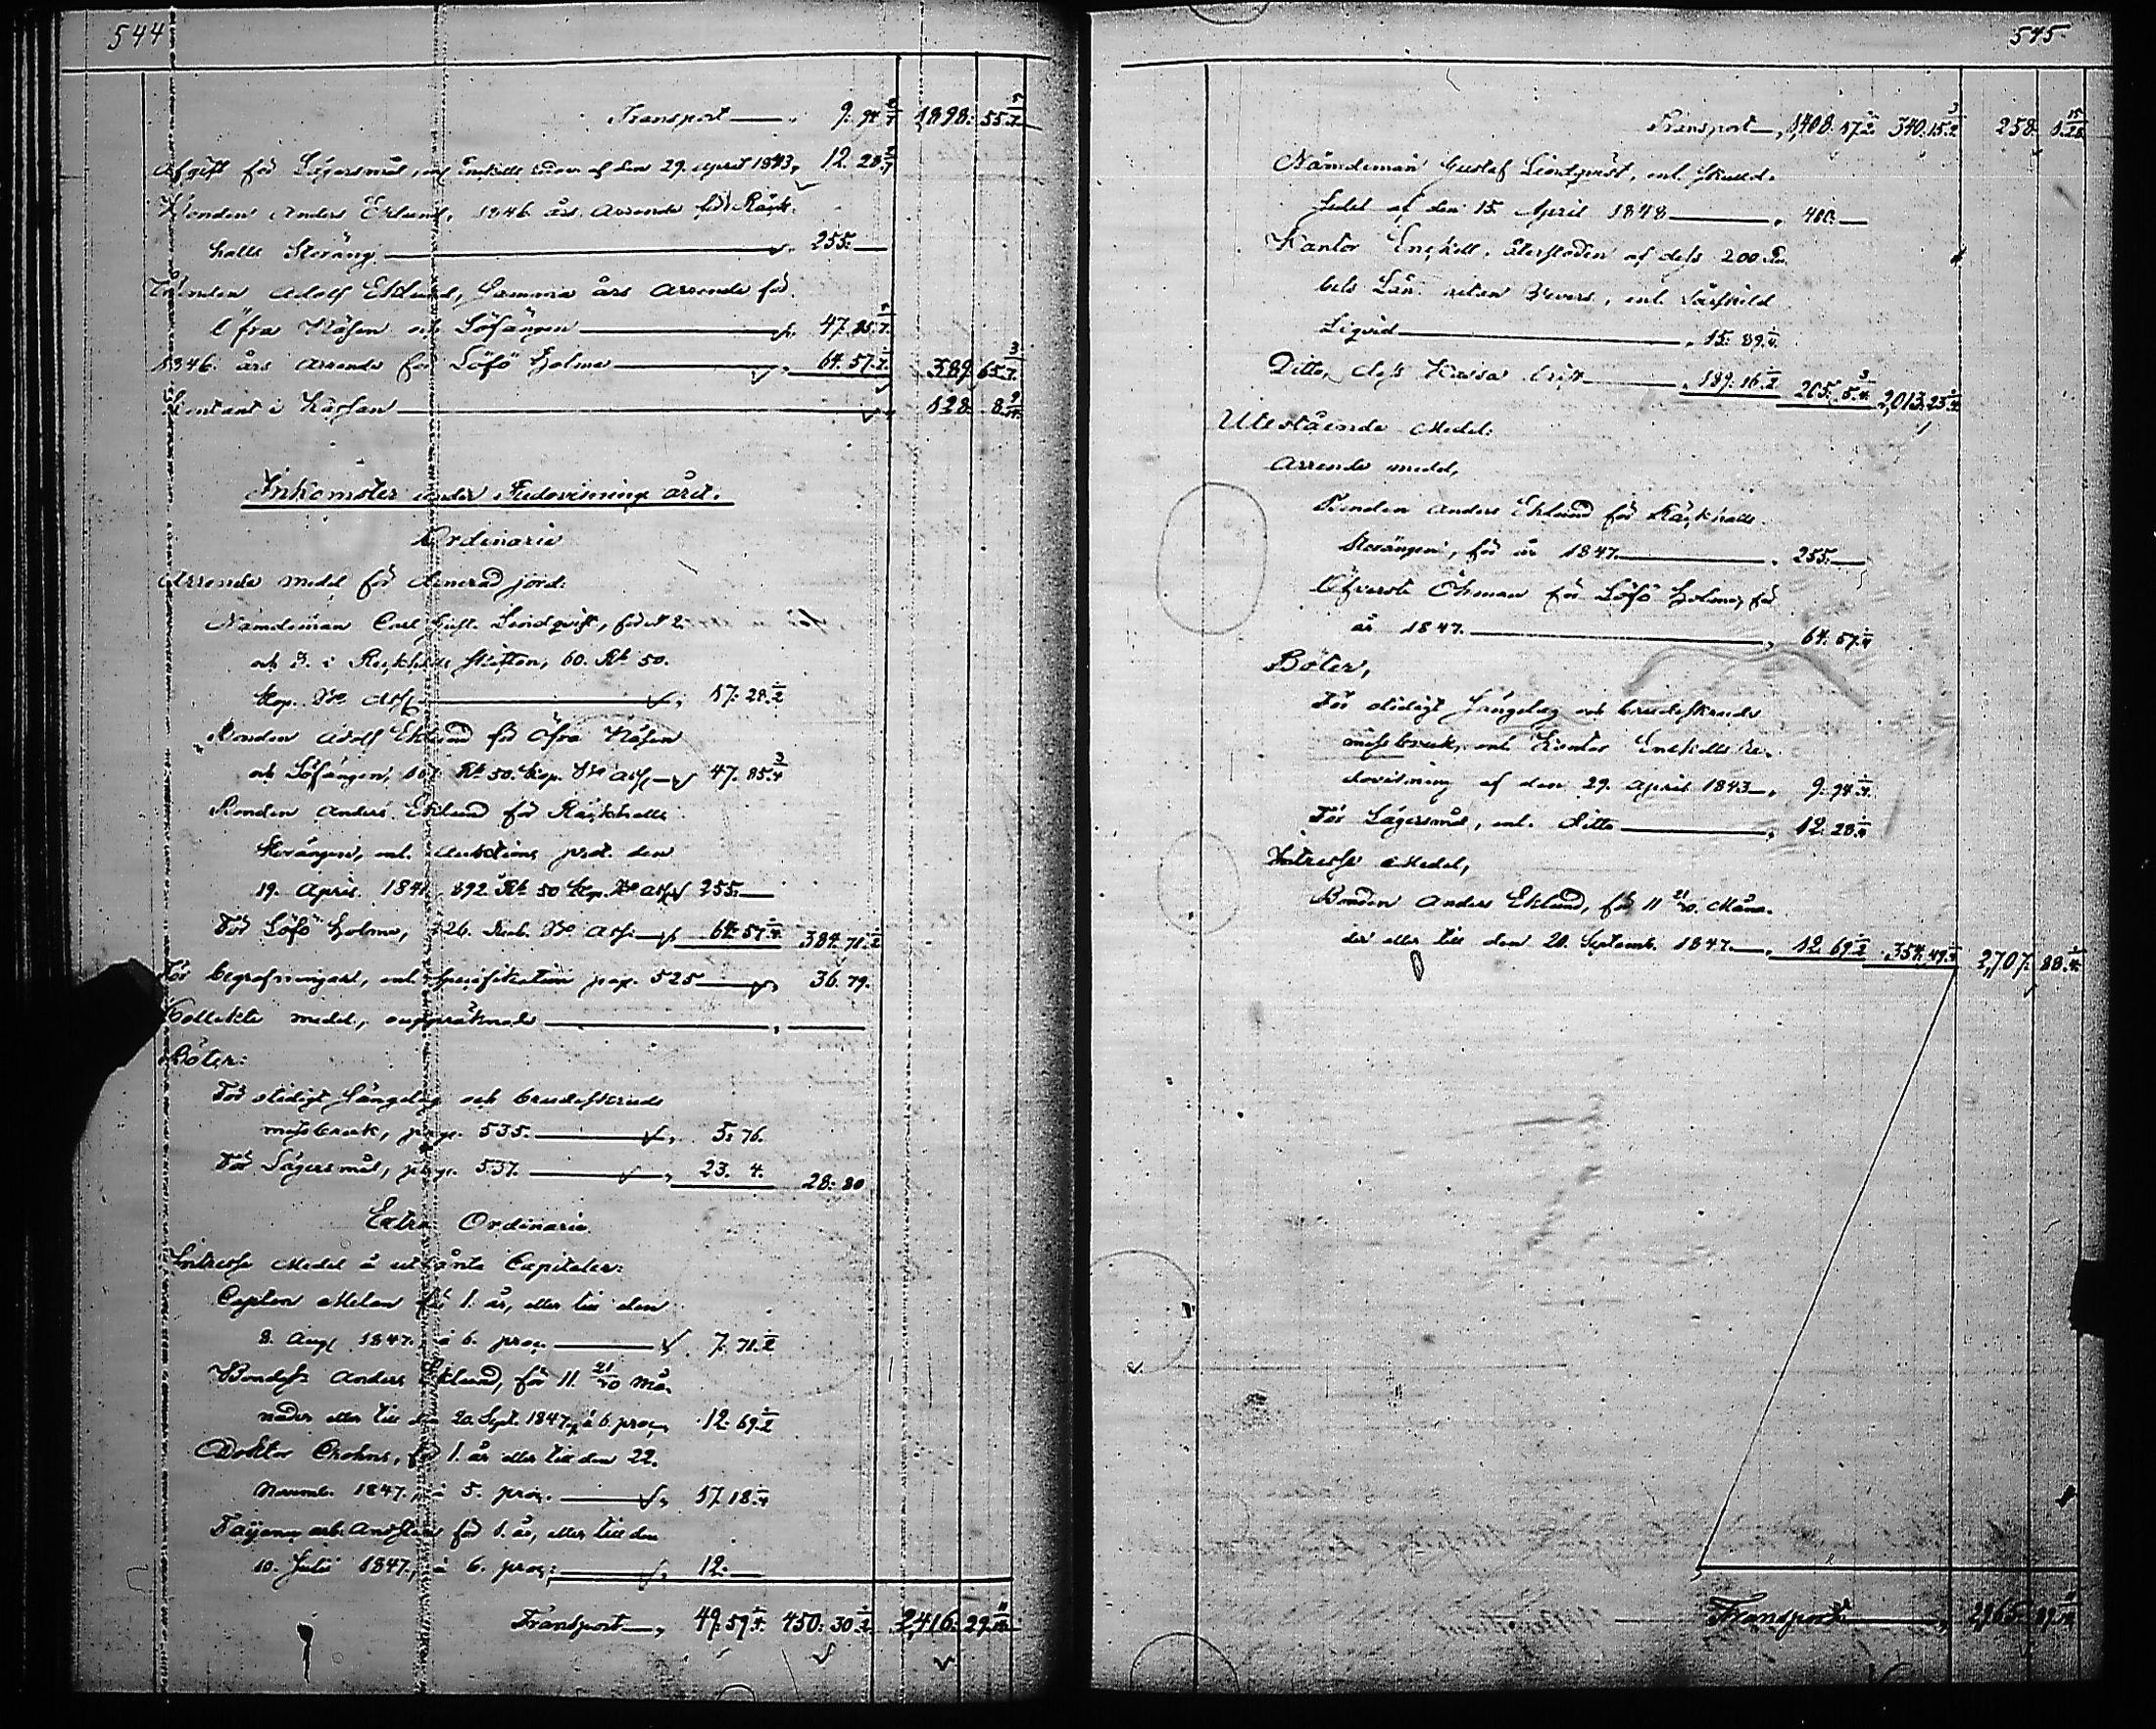 544
Transport — 9. 94 1898. 55
Afgift för Lägersmål, enl. Enckells redov. af den 29. April 1843, 12. 28
Bonden Anders Eklund, 1846 års Arrende för Räck-
halls Storäng — 255. —
Bonden Adolf Eklund, samma års Arrende för
Öfra Näsen och Löfängen — 47. 85
1846. års Arrende för Löfö holme — 64. 57 389. 65
Contant i Kassan — 128. 8
Inkomster under Redovisnings året.
Ordinarie
Arrende medel för Arrenderad jord:
Nämdeman Carl Gust. Lindqvist, för N 2
och 3. i Räckhalls skiften, 60. Rb 50.
kop. B:co Ass. — 17. 28 1/2
Bonden Adolf Eklund för Öfra Näsen
och Löfängen, 167 Rb 50. kop. B:co Ass. — 47. 85 3/4
Bonden Anders Eklund för Räckhalls
Storängen, enl. Auktions prot. den
19. April 1841. 892. Rb 50 kop. B:co Ass. 255. —
För Löfö holme, 226. Rub. B:co Ass. — 64. 57 1/4 384. 71 1/2
För begrafningar, enl. specifikation pag. 525 — 36. 79.
Collekte medel, ouppräknade — —
Böter:
För otidigt Sängelag och brudeskruds
missbruk, pag. 535. — 5. 76.
För Lägersmål, pag. 537. — 23. 4. 28. 80
Extra Ordinarie
Intresse Medel å utlånta Capitaler:
Capten Melan för 1. år, eller till den
8. Aug. 1847. à 6. proc. — 7. 71 1/2
Bonden Anders Eklund, för 11 21/30 må-
nader eller till den 20. Sept. 1847, à 6. proc. 12. 69 1/2
Doktor Crohns, för 1. år eller till den 22.
Novemb. 1847., à 5. proc. — 17. 18 1/4
Fayence arb. Anssten för 1. år, eller till den
10. Julii 1847., à 6. proc. — 12. —
Transport — 49. 59 1/4 450. 30 1/2 2,416. 29
545
Transport — 1,408. 17 1/2 340. 15 258. 1
Nämdeman Gustaf Lindqvist, enl. skuld-
sedel af den 15 April 1848 — 400. —
Kantor Enckell, återstoden af dess 200 Ru-
bels Lån utan Revers, enl. särskild
Liqvid — 15. 89 1/4
Ditto, dess Kassa brist — 189. 16 1/2 205. 5 3/4 2,013. 23 1/4
Utestående Medel:
Arrende medel,
Bonden Anders Eklund för Räckhalls
Storängen, för år 1847. — 255. —
Öfverste Öhman för Löfö holme, för
år 1847. — 64. 57 1/4
Böter,
För otidigt Sängelag och brudeskruds
missbruk, enl. Kantor Enckells re-
dovisning af den 29. April 1843 — 9. 94 1/4
För Lägersmål, enl. Ditto — 12. 28 1/4
Intresse Medel,
Bonden Anders Eklund, för 11 21/30. Måna-
der eller till den 20. Septemb. 1847 — 12. 69 1/2 354. 49 1/4 2,707. 88 1/4
Transport — 2,965. 89